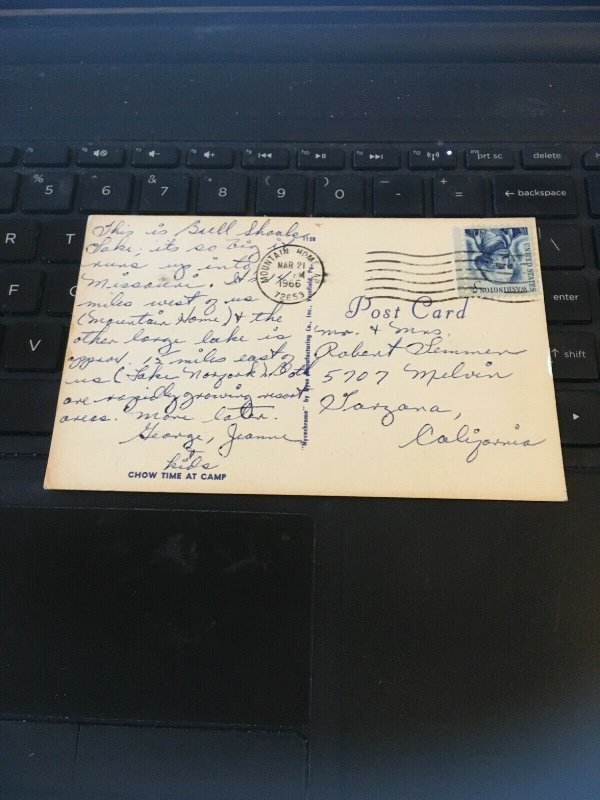 This is Bull Shoals
Lake, its so big it
runs up into
Missouri. It's 15
miles west of us
(Mountain Home) & the
other large lake is
approx. 15 miles east of
us (Lake Norfork). Both
are rapidly growing resort
areas. More later.
George, Jeanne
& kids
CHOW TIME AT CAMP
115B
MOUNTAIN HOME, AR
MAR 21
PM
1966
72653
UNITED STATES
WASHINGTON
5
Post Card
Mr. & Mrs.
Robert Lemmer
5707 Melvin
Tarzana,
California
prt sc
delete
backspace
shift
%
5
^
6
&
7
*
8
(
9
)
0
-
=
R
T
F
V